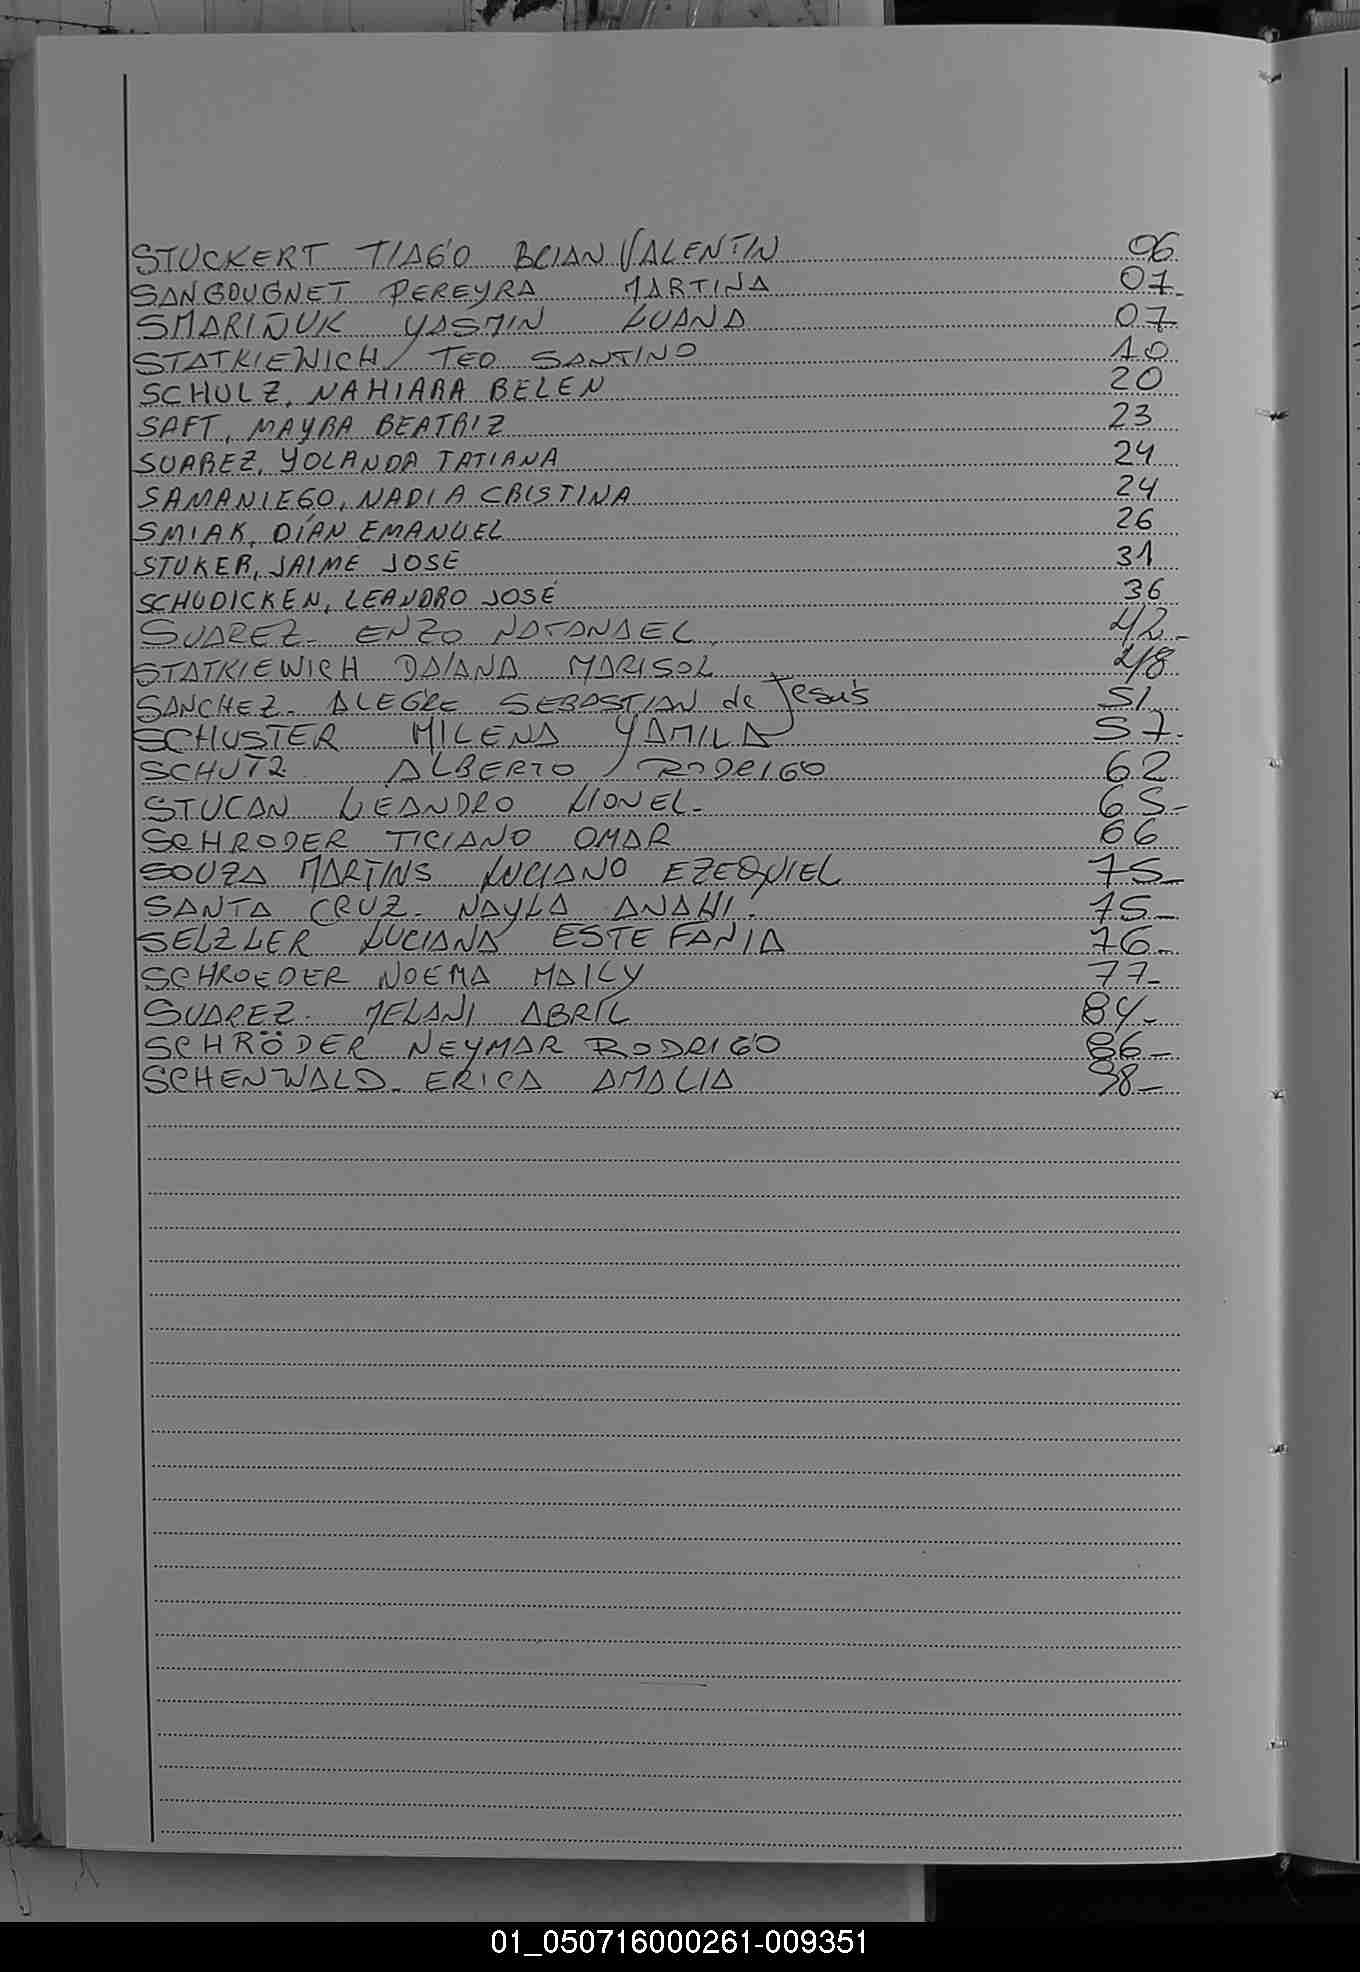 STUCKERT TIAGO BRIAN VALENTIN 06
SANGOUGNET PEREYRA MARTINA 07-
SMARIÑUK YASMIN LUANA 07
STATKIEWICH TEO SANTINO 10
SCHULZ, NAHIARA BELEN 20
SAFT, MAYRA BEATRIZ 23
SUAREZ, YOLANDA TATIANA 24
SAMANIEGO, NADIA CRISTINA 24
SMIAK, DÍAN EMANUEL 26
STUKER, JAIME JOSE 31
SCHUDICKEN, LEANDRO JOSÉ 36
SUAREZ- ENZO NATANAEL 42-
STATKIEWICH DAIANA MARISOL 48
SANCHEZ- ALEGRE SEBASTIAN de Jesús 51
SCHUSTER MILENA YAMILA 57-
SCHUTZ ALBERTO RODRIGO 62
STUCAN LEANDRO LIONEL- 65-
SCHRODER TICIANO OMAR 66
SOUZA MARTINS LUCIANO EZEQUIEL 75-
SANTA CRUZ- NAYLA ANAHI. 75-
SELZLER LUCIANA ESTEFANIA 76-
SCHROEDER NOEMA MAILY 77-
SUAREZ- MELANI ABRIL 84-
SCHRÖDER NEYMAR RODRIGO 86-
SCHENWALD- ERICA AMALIA 98-
01_050716000261-009351